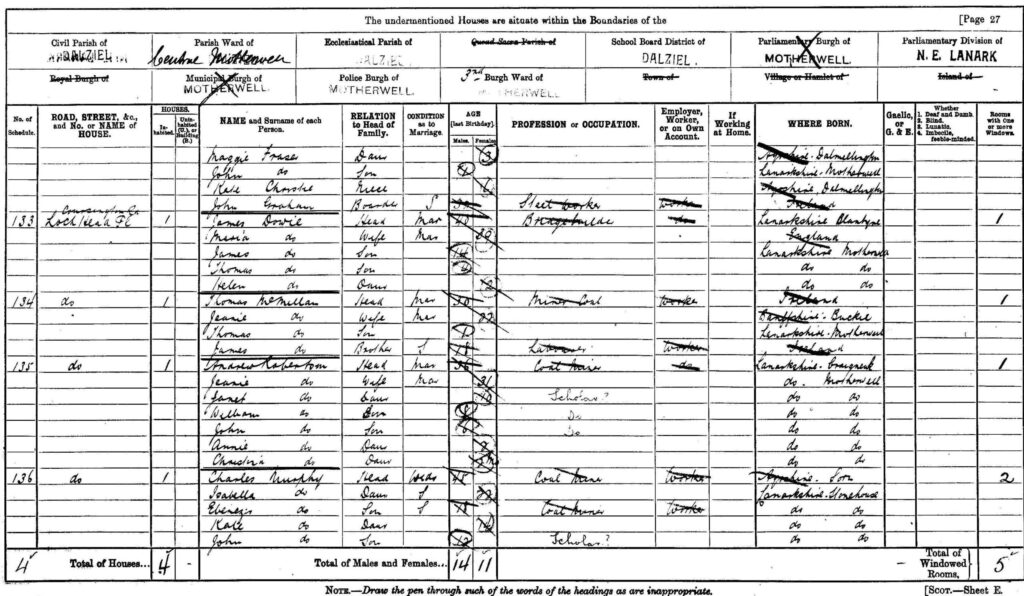 The undermentioned Houses are situate within the Boundaries of the [Page 27
Civil Parish of DALZIEL Parish Ward of Central Motherwell Ecclesiastical Parish of DALZIEL. Quoad Sacra Parish of School Board District of DALZIEL. Parliamentary Burgh of MOTHERWELL. Parliamentary Division of N. E. LANARK
Royal Burgh of Municipal Burgh of MOTHERWELL Police Burgh of MOTHERWELL. 3rd Burgh Ward of MOTHERWELL. Town of Village or Hamlet of Island of
No. of Schedule. ROAD, STREET, &c., and No. or NAME of HOUSE. HOUSES. Inhabited. Uninhabited (U.), or Building (B.) NAME and Surname of each Person. RELATION to Head of Family. CONDITION as to Marriage. AGE (last Birthday). Males. Females. PROFESSION or OCCUPATION. Employer, Worker, or on Own Account. If Working at Home. WHERE BORN. Gaelic, or G. & E. Whether 1. Deaf and Dumb. 2. Blind. 3. Lunatic. 4. Imbecile, feeble-minded. Rooms with one or more Windows.
Maggie Fraser Daur 3 Ayrshire-Dalmellington
John do Son Lanarkshire-Motherwell
Kate Christie Niece Ayrshire, Dalmellington
John Graham Boarder S Steel Worker Worker Ireland
133 Lochhead 1 James Dowie Head Mar do Lanarkshire Blantyre 1
Maria do Wife Mar England
James do Son 14 Lanarkshire Motherwell
Thomas do Son do do
Helen do Daur do do
134 do 1 Thomas McMillan Head Mar 30 Miner Coal Worker Ireland 1
Jeanie do Wife Mar 22 Banffshire-Buckie
Thomas do Son 1 Lanarkshire-Motherwell
James do Brother S Labourer Worker Ireland
135 do 1 Andrew Robertson Head Mar 36 Coal Miner do Lanarkshire- 1
Jeanie do Wife Mar do. Motherwell
Janet do Daur Scholar do do
William do Son Do do do
John do Son Do do do
Annie do Daur do do
Christina do Daur do do
136 do 1 Charles Murphy Head Coal Miner Worker Ayrshire- Sorn 2
Isabella do Daur S 22 Lanarkshire-Stonehouse
Ebenezer do Son S Coal Miner Worker do do
Kate do Daur do do
John do Son 12 Scholar do do
4 Total of Houses... 4 - Total of Males and Females... 14 11 Total of Windowed Rooms, 5
NOTE.—Draw the pen through such of the words of the headings as are inappropriate. [SCOT.—Sheet E.